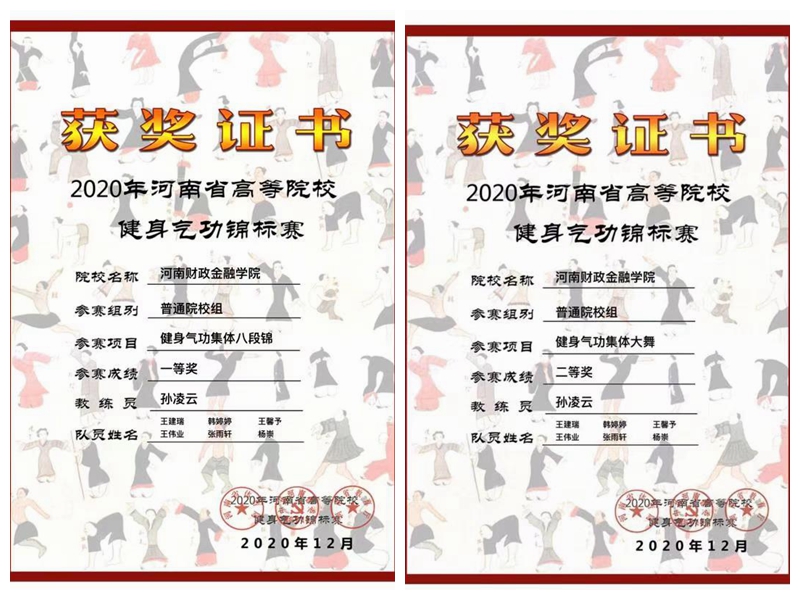 获奖证书
2020年河南省高等院校
健身气功锦标赛
院校名称 河南财政金融学院
参赛组别 普通院校组
参赛项目 健身气功集体八段锦
参赛成绩 一等奖
教练员 孙凌云
队员姓名 王建瑞 韩婷婷 王馨予
王伟业 张雨轩 杨崇
2020年河南省高等院校
健身气功锦标赛
2020年12月
获奖证书
2020年河南省高等院校
健身气功锦标赛
院校名称 河南财政金融学院
参赛组别 普通院校组
参赛项目 健身气功集体大舞
参赛成绩 二等奖
教练员 孙凌云
队员姓名 王建瑞 韩婷婷 王馨予
王伟业 张雨轩 杨崇
2020年河南省高等院校
健身气功锦标赛
2020年12月